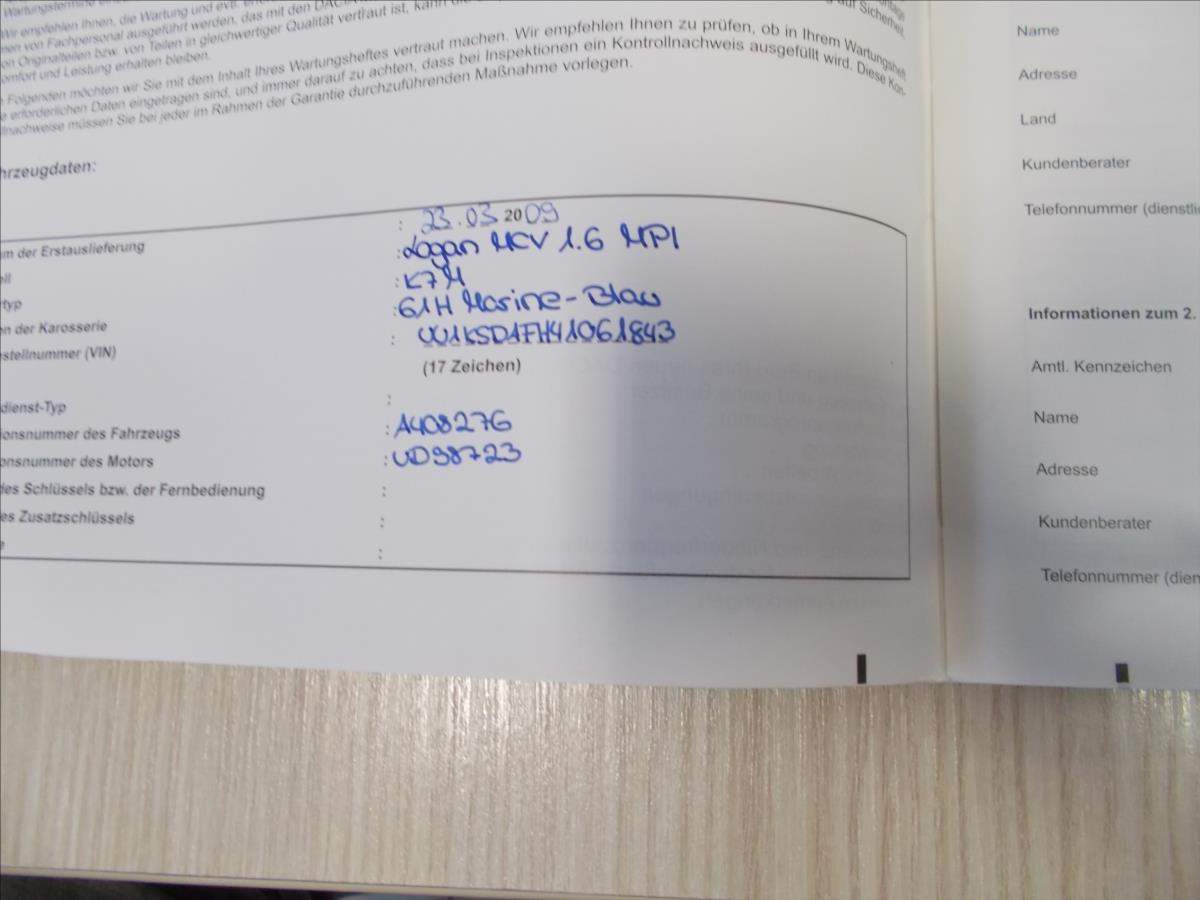 Wartungstermine
Wir empfehlen Ihnen, die Wartung und evtl.
nen von Fachpersonal ausgeführt werden, das mit den DACIA
on Originalteilen bzw. von Teilen in gleichwertiger Qualität vertraut ist, kann die
omfort und Leistung erhalten bleiben. auf Sicherheit,
Folgenden möchten wir Sie mit dem Inhalt Ihres Wartungsheftes vertraut machen. Wir empfehlen Ihnen zu prüfen, ob in Ihrem Wartungsheft
e erforderlichen Daten eingetragen sind, und immer darauf zu achten, dass bei Inspektionen ein Kontrollnachweis ausgefüllt wird. Diese Kon-
llnachweise müssen Sie bei jeder im Rahmen der Garantie durchzuführenden Maßnahme vorlegen.
hrzeugdaten:
um der Erstauslieferung : 23.03 2009
ell : Logan MCV 1.6 MPI
typ : K7M
en der Karosserie : 61H Marine-Blau
estellnummer (VIN) : UU1KSD1FH41061843
(17 Zeichen)
dienst-Typ :
ionsnummer des Fahrzeugs : A408276
onsnummer des Motors : UD98723
des Schlüssels bzw. der Fernbedienung :
es Zusatzschlüssels :
e :
Name
Adresse
Land
Kundenberater
Telefonnummer (dienstli
Informationen zum 2.
Amtl. Kennzeichen
Name
Adresse
Kundenberater
Telefonnummer (dien